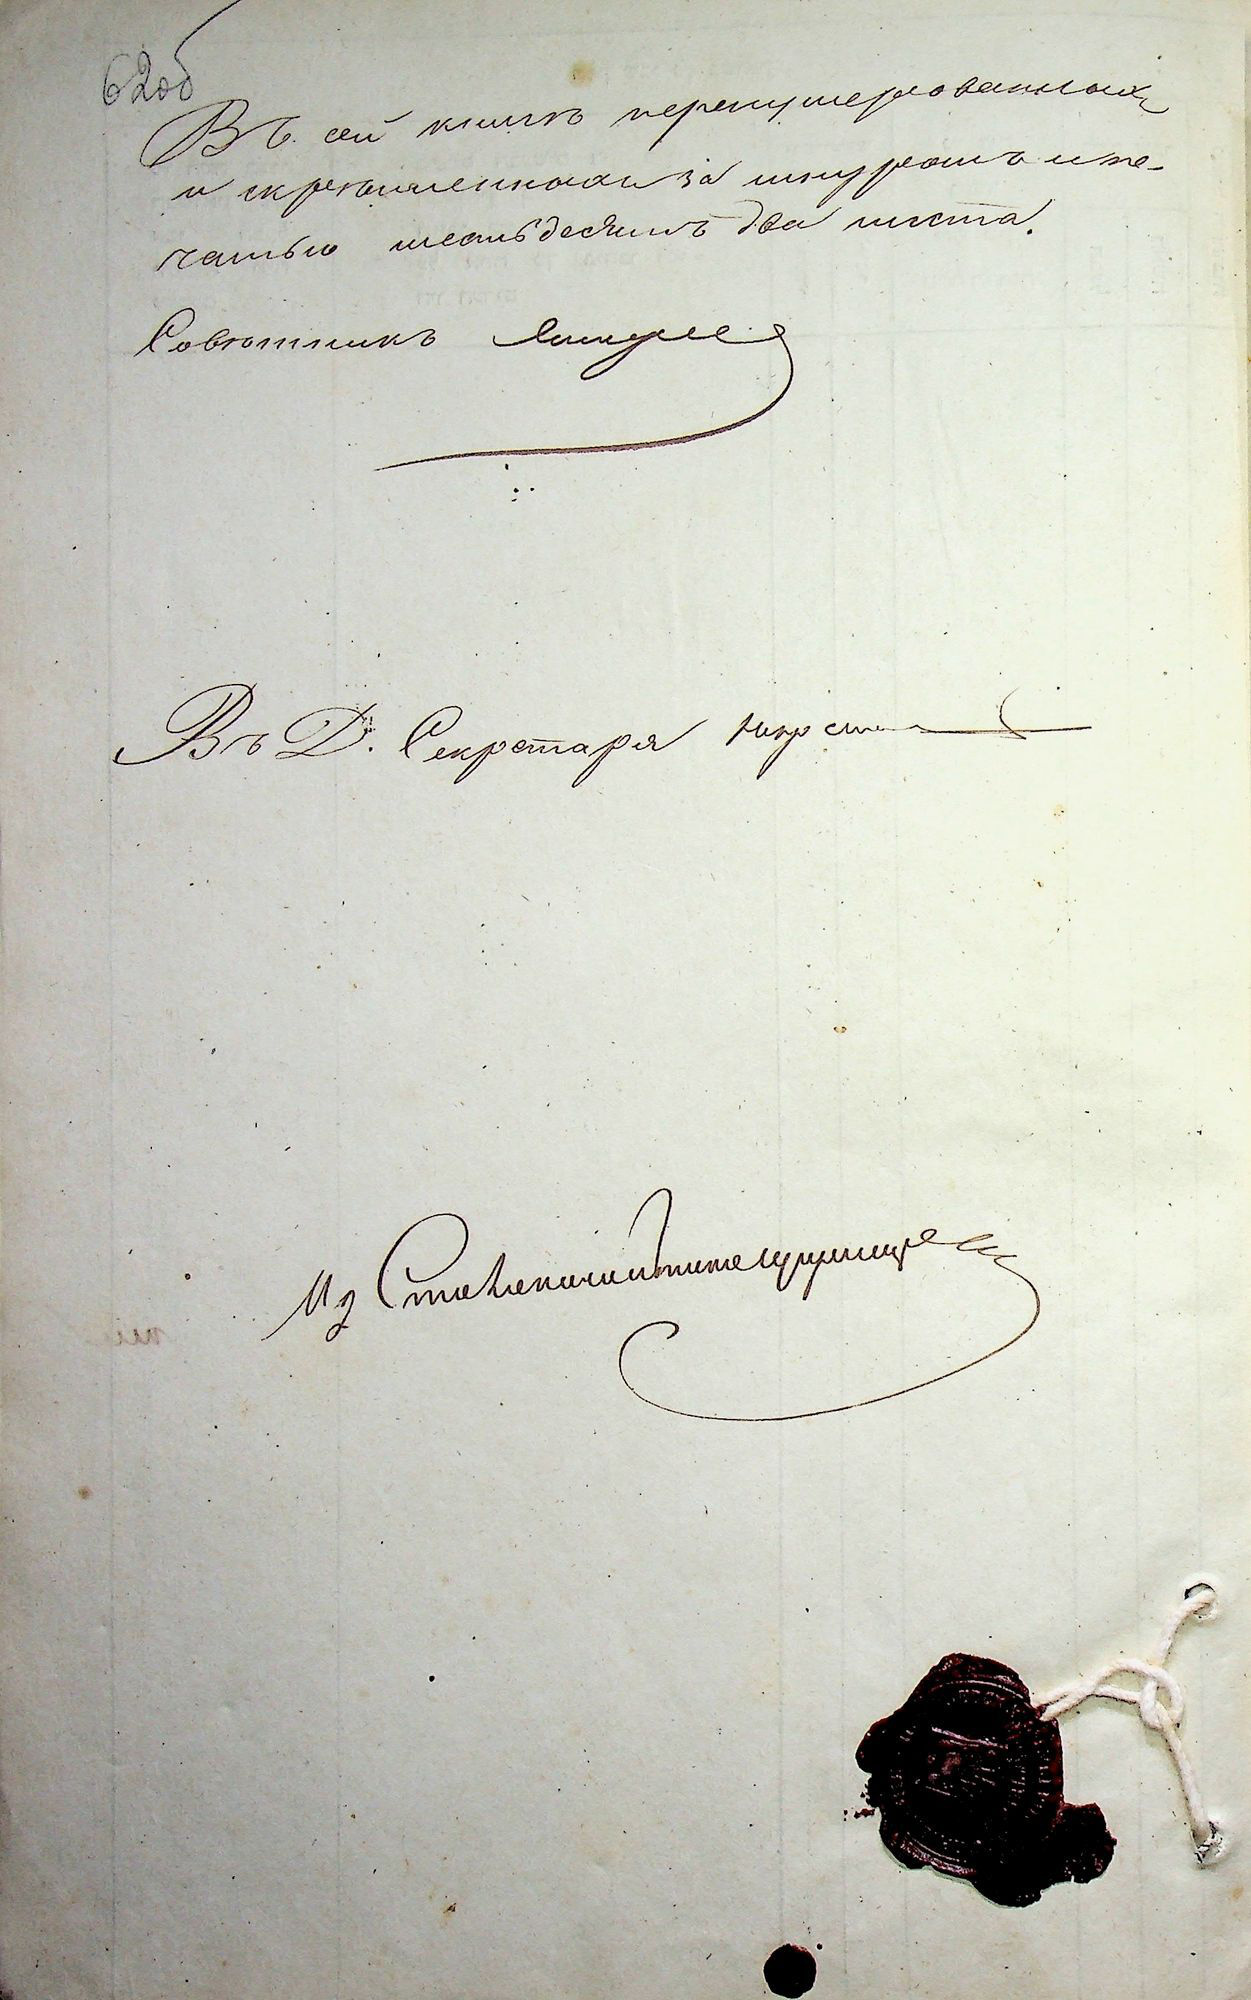 62об
Въ сей книгѣ перенумерованныхъ
и скрѣпленныхъ за шнуромъ и пе-
чатью шестьдесятъ два листа.
Совѣтникъ
Въ Д. Секретаря